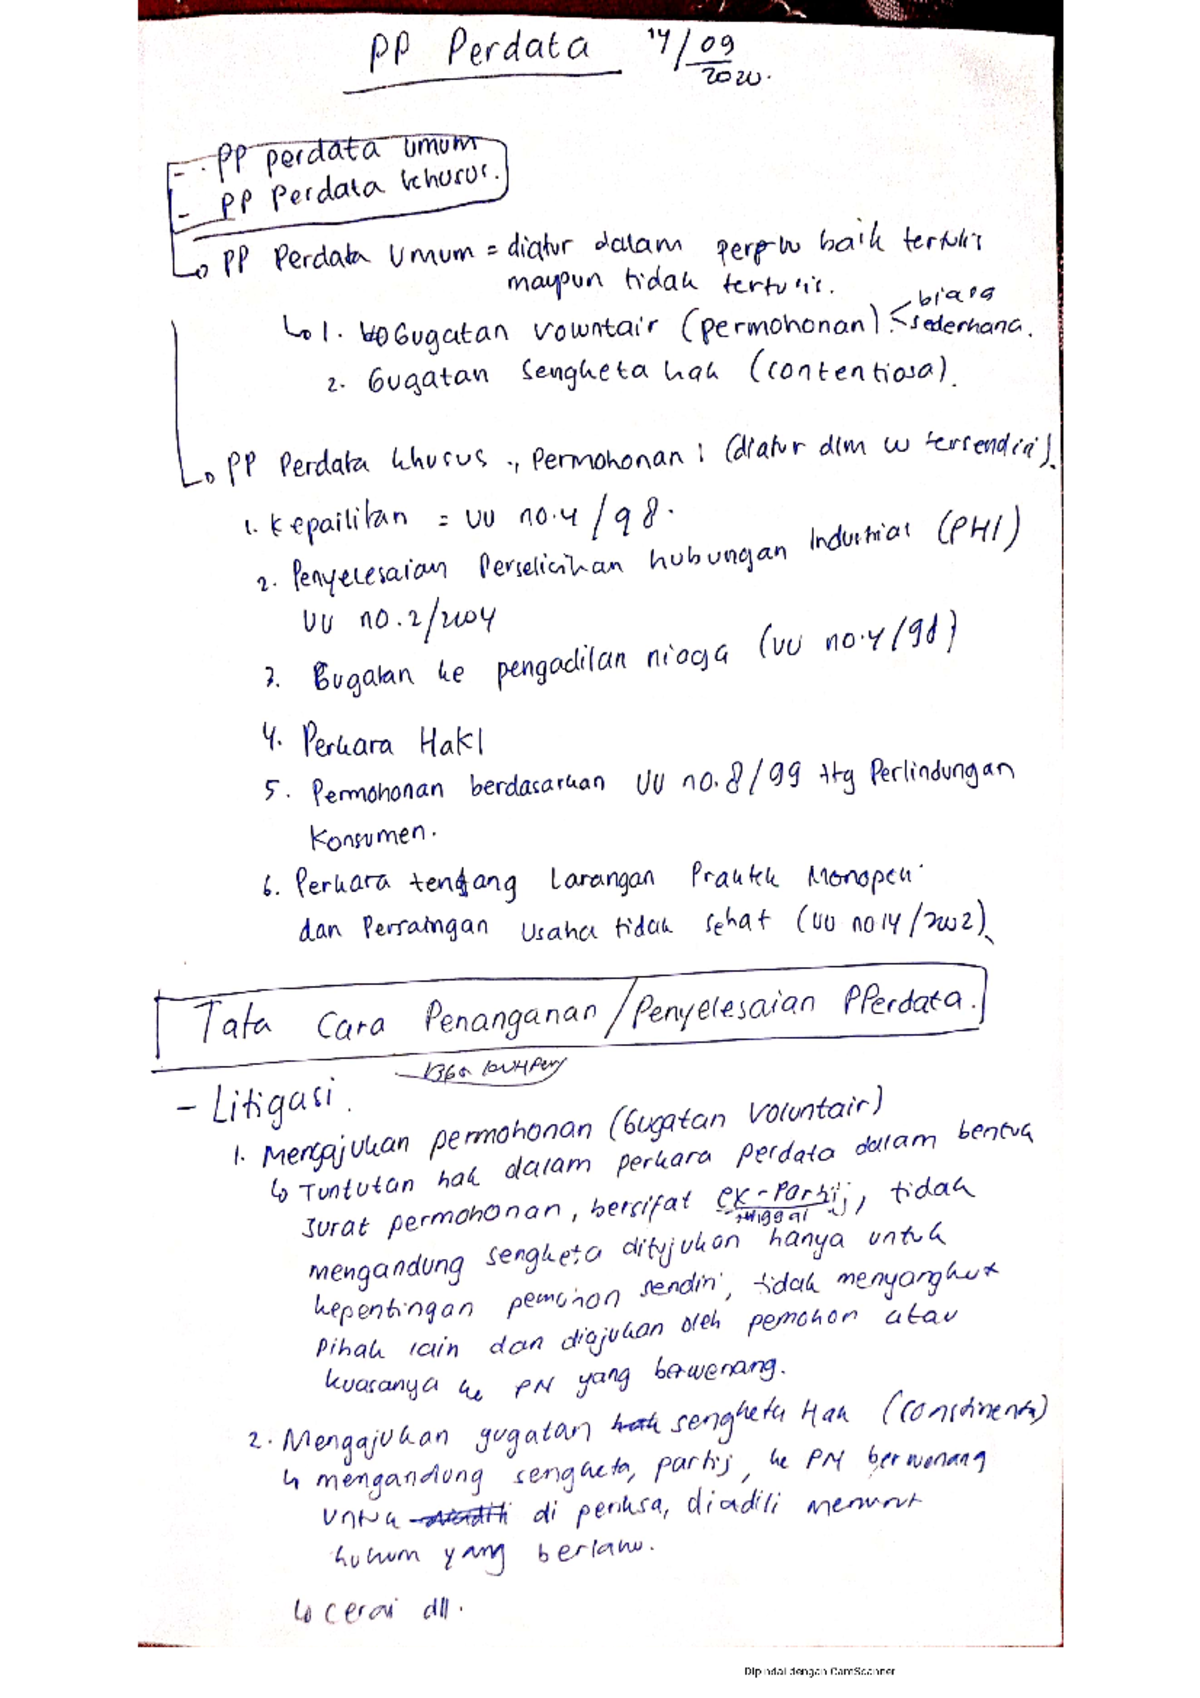 PP Perdata 14/09/2020.
- PP perdata umum
- PP Perdata khusus.
PP Perdata Umum = diatur dalam perpu baik tertulis
maupun tidak tertulis.
1. Gugatan voluntair (permohonan) < biasa
sederhana.
2. Gugatan Sengketa hak (contentiosa).
PP Perdata khusus, Permohonan : (diatur dlm UU tersendiri).
1. Kepailitan = UU no.4/98.
2. Penyelesaian Perselisihan hubungan Industrial (PHI)
UU no.2/2004
3. Gugatan ke pengadilan niaga (UU no.4/98)
4. Perkara HakI
5. Permohonan berdasarkan UU no.8/99 ttg Perlindungan
Konsumen.
6. Perkara tentang Larangan Praktek Monopoli
dan Persaingan Usaha tidak sehat (UU no 14/2002)
Tata Cara Penanganan/Penyelesaian PPerdata.
- Litigasi.
1. Mengajukan permohonan (Gugatan Voluntair)
Tuntutan hak dalam perkara perdata dalam bentuk
surat permohonan, bersifat ex-Partij, tidak
mengandung sengketa ditujukan hanya untuk
kepentingan pemohon sendiri, tidak menyangkut
Pihak lain dan diajukan oleh pemohon atau
kuasanya ke PN yang berwenang.
2. Mengajukan gugatan sengketa Hak
mengandung sengketa, partij, ke PN berwenang
untuk di periksa, diadili menurut
hukum yang berlaku.
cerai dll.
Dipindai dengan CamScanner